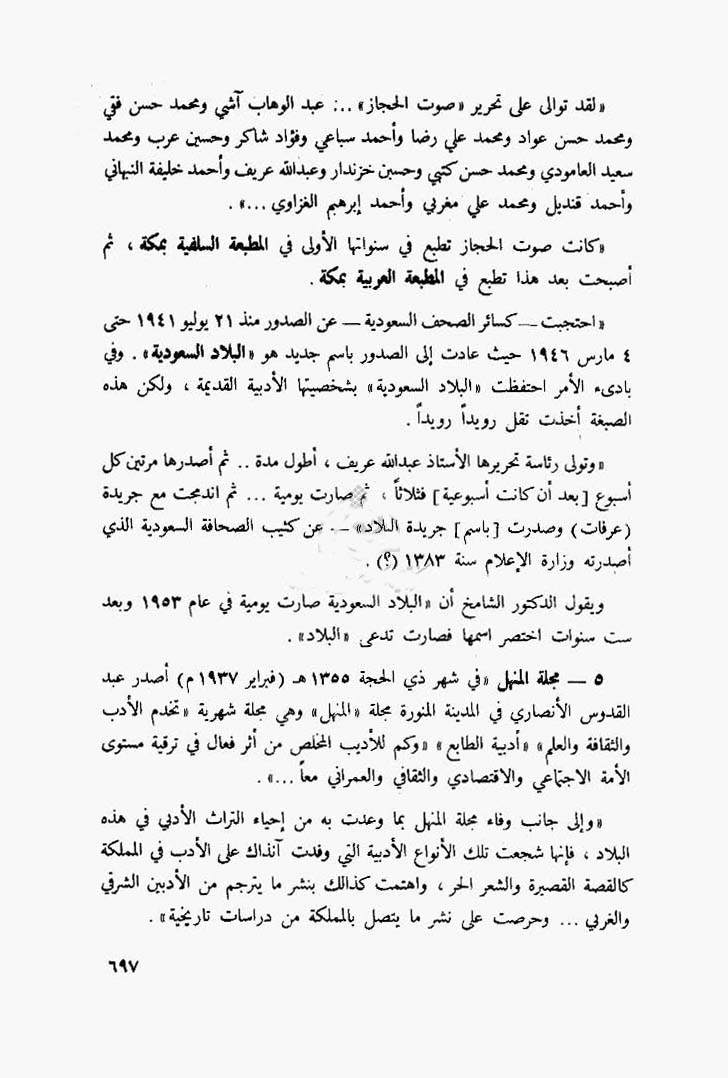 «لقد توالى على تحرير «صوت الحجاز» ..: عبد الوهاب آشي ومحمد حسن فقي
ومحمد حسن عواد ومحمد علي رضا وأحمد سباعي وفؤاد شاكر وحسين عرب ومحمد
سعيد العامودي ومحمد حسن كتبي وحسين خزندار وعبدالله عريف وأحمد خليفة النبهاني
وأحمد قنديل ومحمد علي مغربي وأحمد إبرهيم الغزاوي ...» .
«كانت صوت الحجاز تطبع في سنواتها الأولى في المطبعة السلفية بمكة ، ثم
أصبحت بعد هذا تطبع في المطبعة العربية بمكة .
«احتجبت — كسائر الصحف السعودية — عن الصدور منذ ٢١ يوليو ١٩٤١ حتى
٤ مارس ١٩٤٦ حيث عادت إلى الصدور باسم جديد هو «البلاد السعودية» . وفي
بادىء الأمر احتفظت «البلاد السعودية» بشخصيتها الأدبية القديمة ، ولكن هذه
الصبغة أخذت تقل رويداً رويداً .
«وتولى رئاسة تحريرها الأستاذ عبدالله عريف ، أطول مدة .. ثم أصدرها مرتين كل
أسبوع [بعد أن كانت أسبوعية] فثلاثاً ، ثم صارت يومية ... ثم اندمجت مع جريدة
(عرفات) وصدرت [باسم] جريدة البلاد» — عن كتيب الصحافة السعودية الذي
أصدرته وزارة الإعلام سنة ١٣٨٣ (؟) .
ويقول الدكتور الشامخ أن «البلاد السعودية صارت يومية في عام ١٩٥٣ وبعد
ست سنوات اختصر اسمها فصارت تدعى «البلاد» .
٥ — مجلة المنهل «في شهر ذي الحجة ١٣٥٥ هـ (فبراير ١٩٣٧ م) أصدر عبد
القدوس الأنصاري في المدينة المنورة مجلة «المنهل» وهي مجلة شهرية «تخدم الأدب
والثقافة والعلم» «أدبية الطابع» «وكم للأديب المخلص من أثر فعال في ترقية مستوى
الأمة الاجتماعي والاقتصادي والثقافي والعمراني معاً ...» .
«وإلى جانب وفاء مجلة المنهل بما وعدت به من إحياء التراث الأدبي في هذه
البلاد ، فإنها شجعت تلك الأنواع الأدبية التي وفدت آنذاك على الأدب في المملكة
كالقصة القصيرة والشعر الحر ، واهتمت كذالك بنشر ما يترجم من الأدبين الشرقي
والغربي ... وحرصت على نشر ما يتصل بالمملكة من دراسات تاريخية» .
٦٩٧